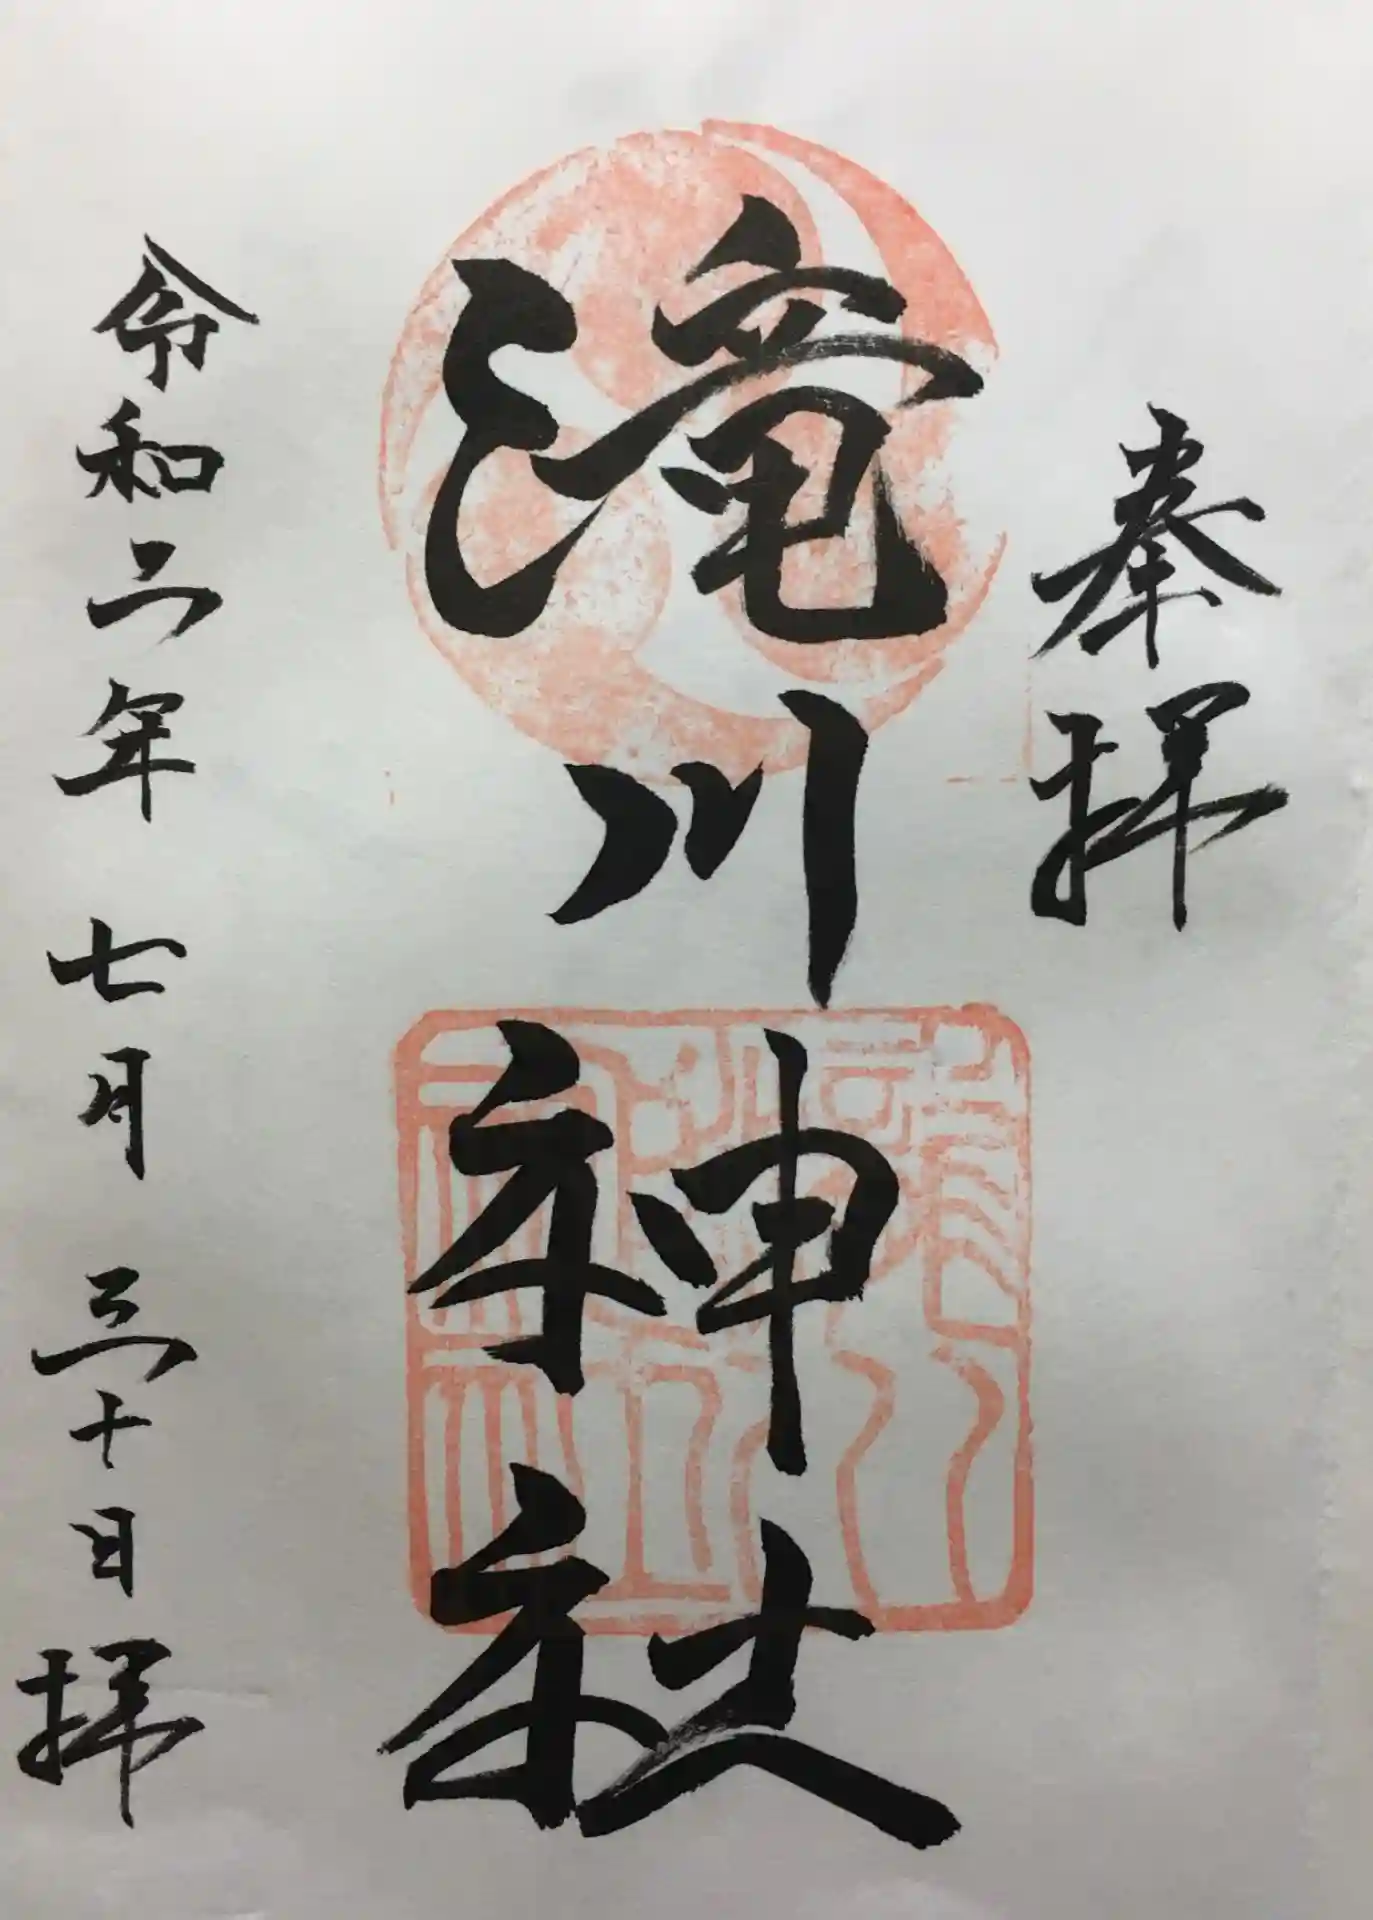 奉拝
滝川神社
令和二年 七月 三十日 拝